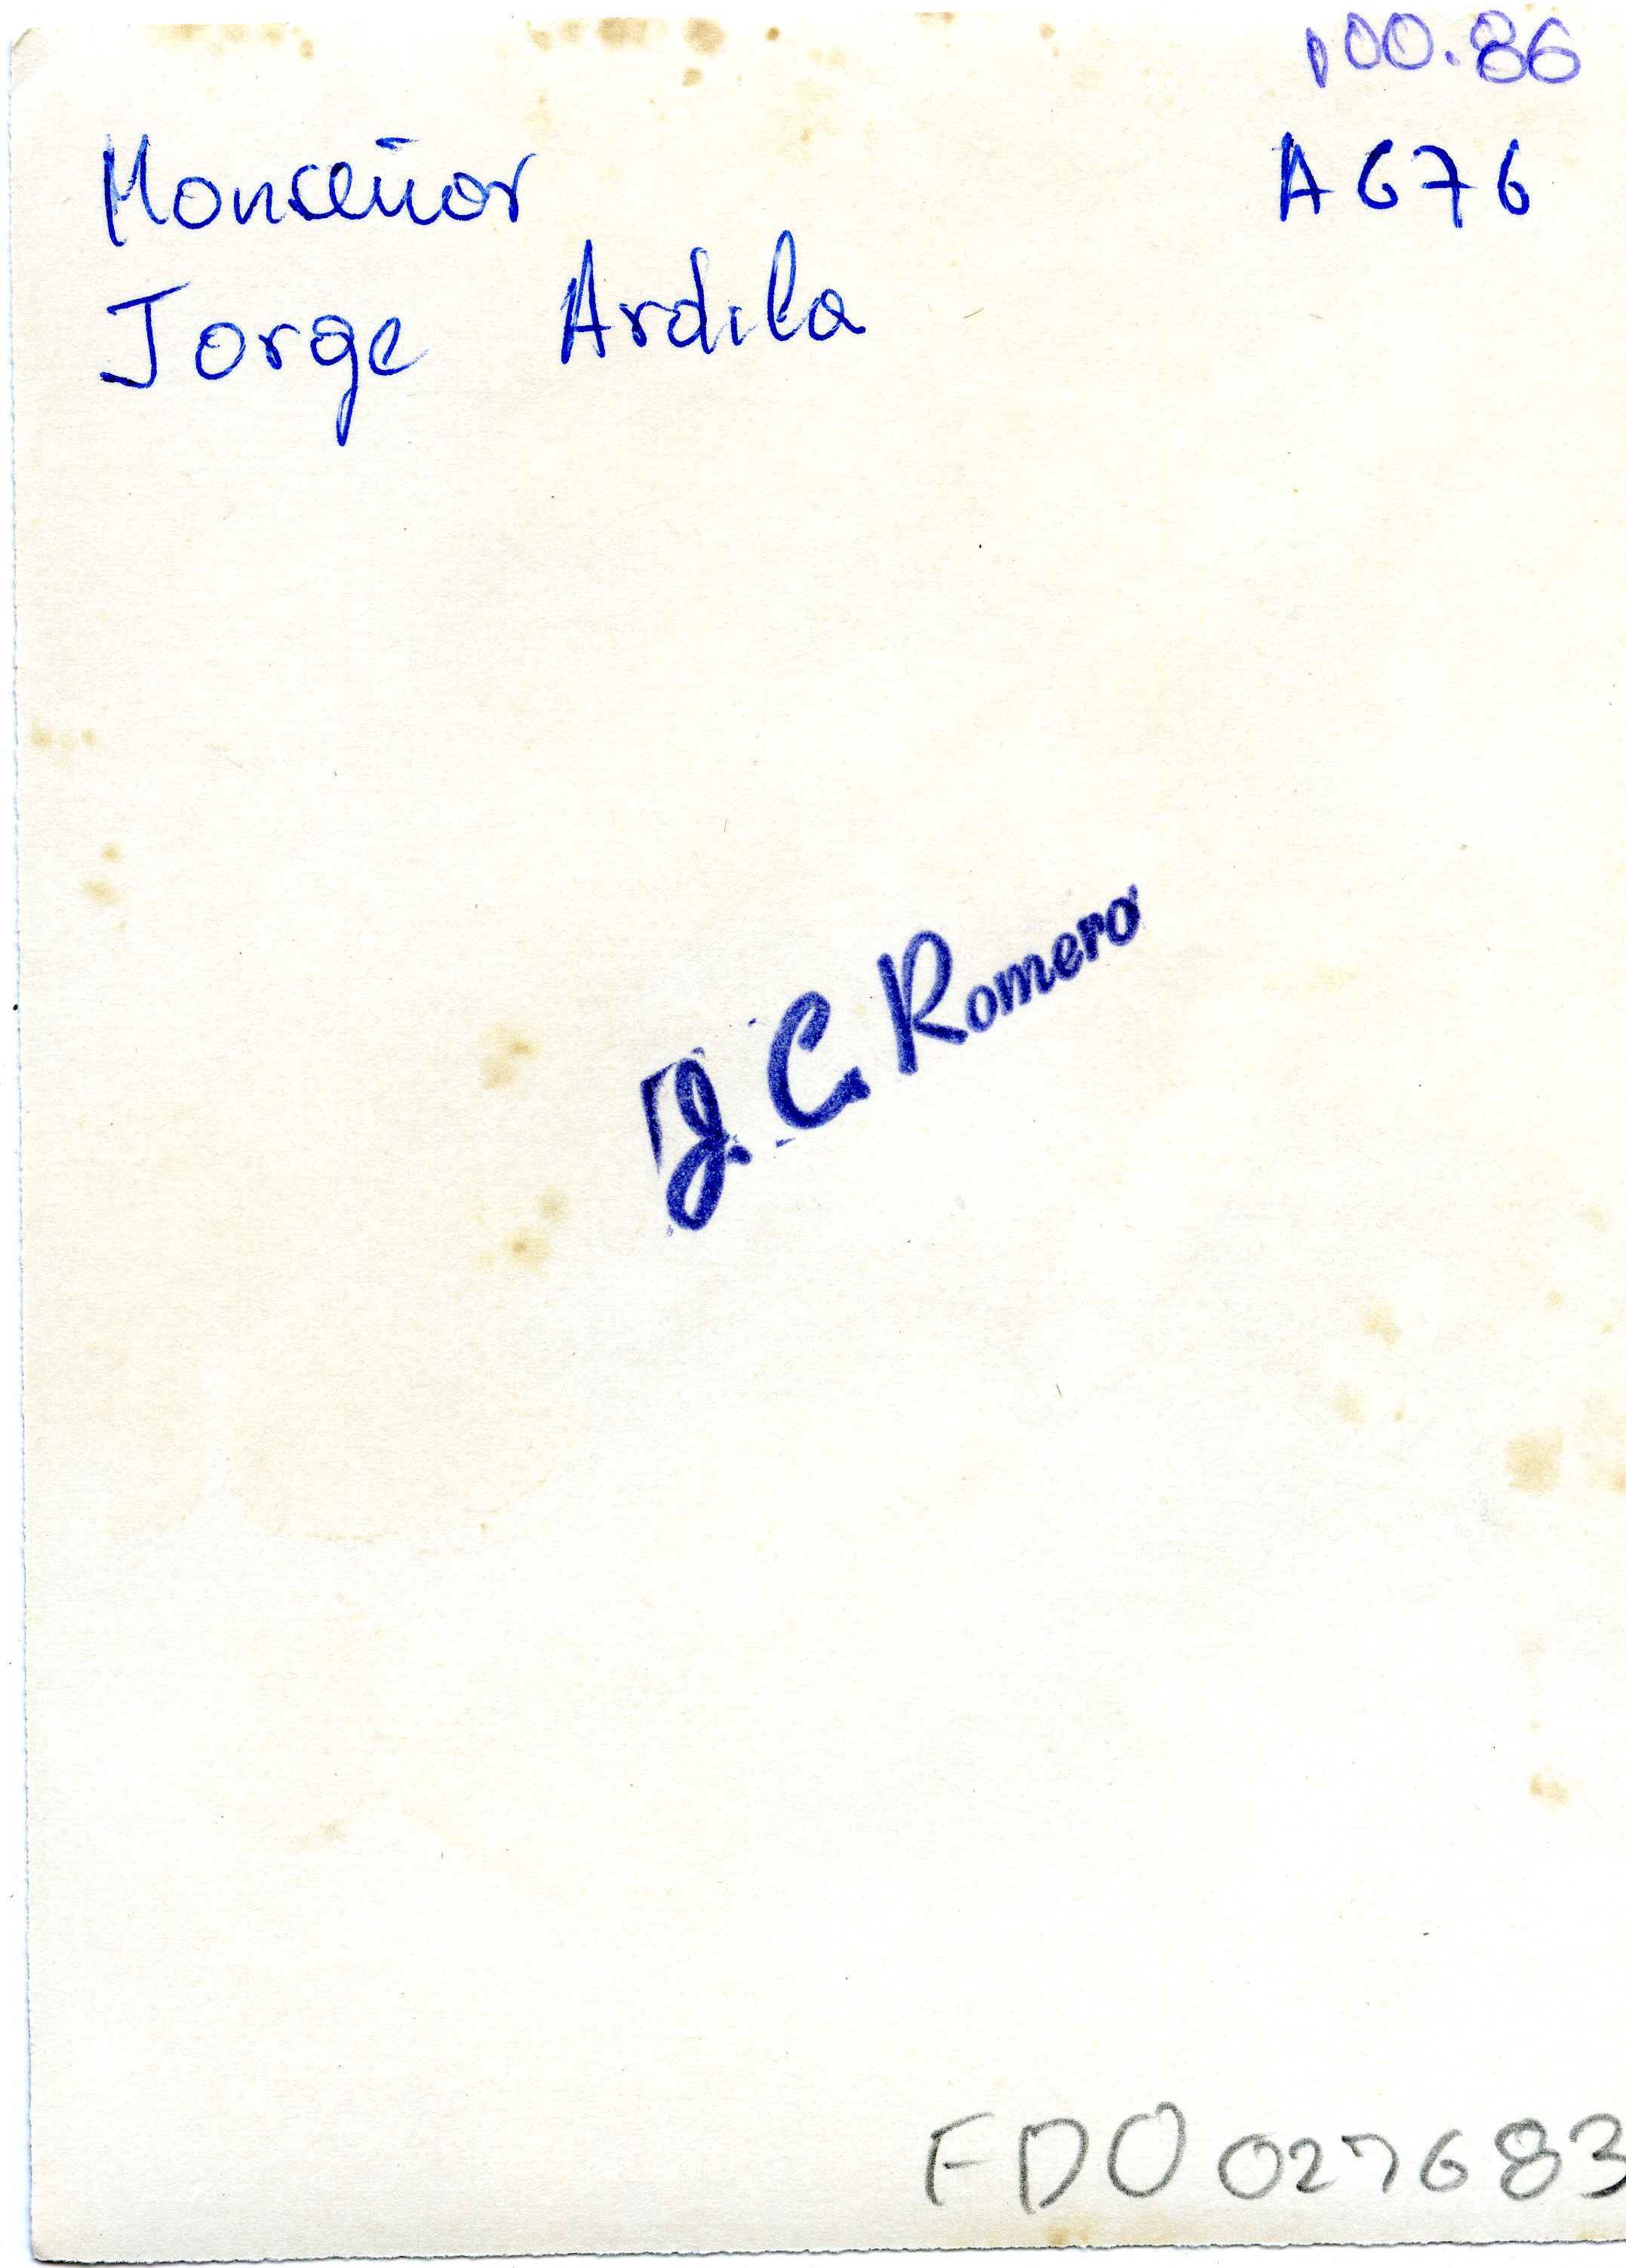 100.86
A676
Monseñor
Jorge Ardila
J. C. Romero
FDO 027683